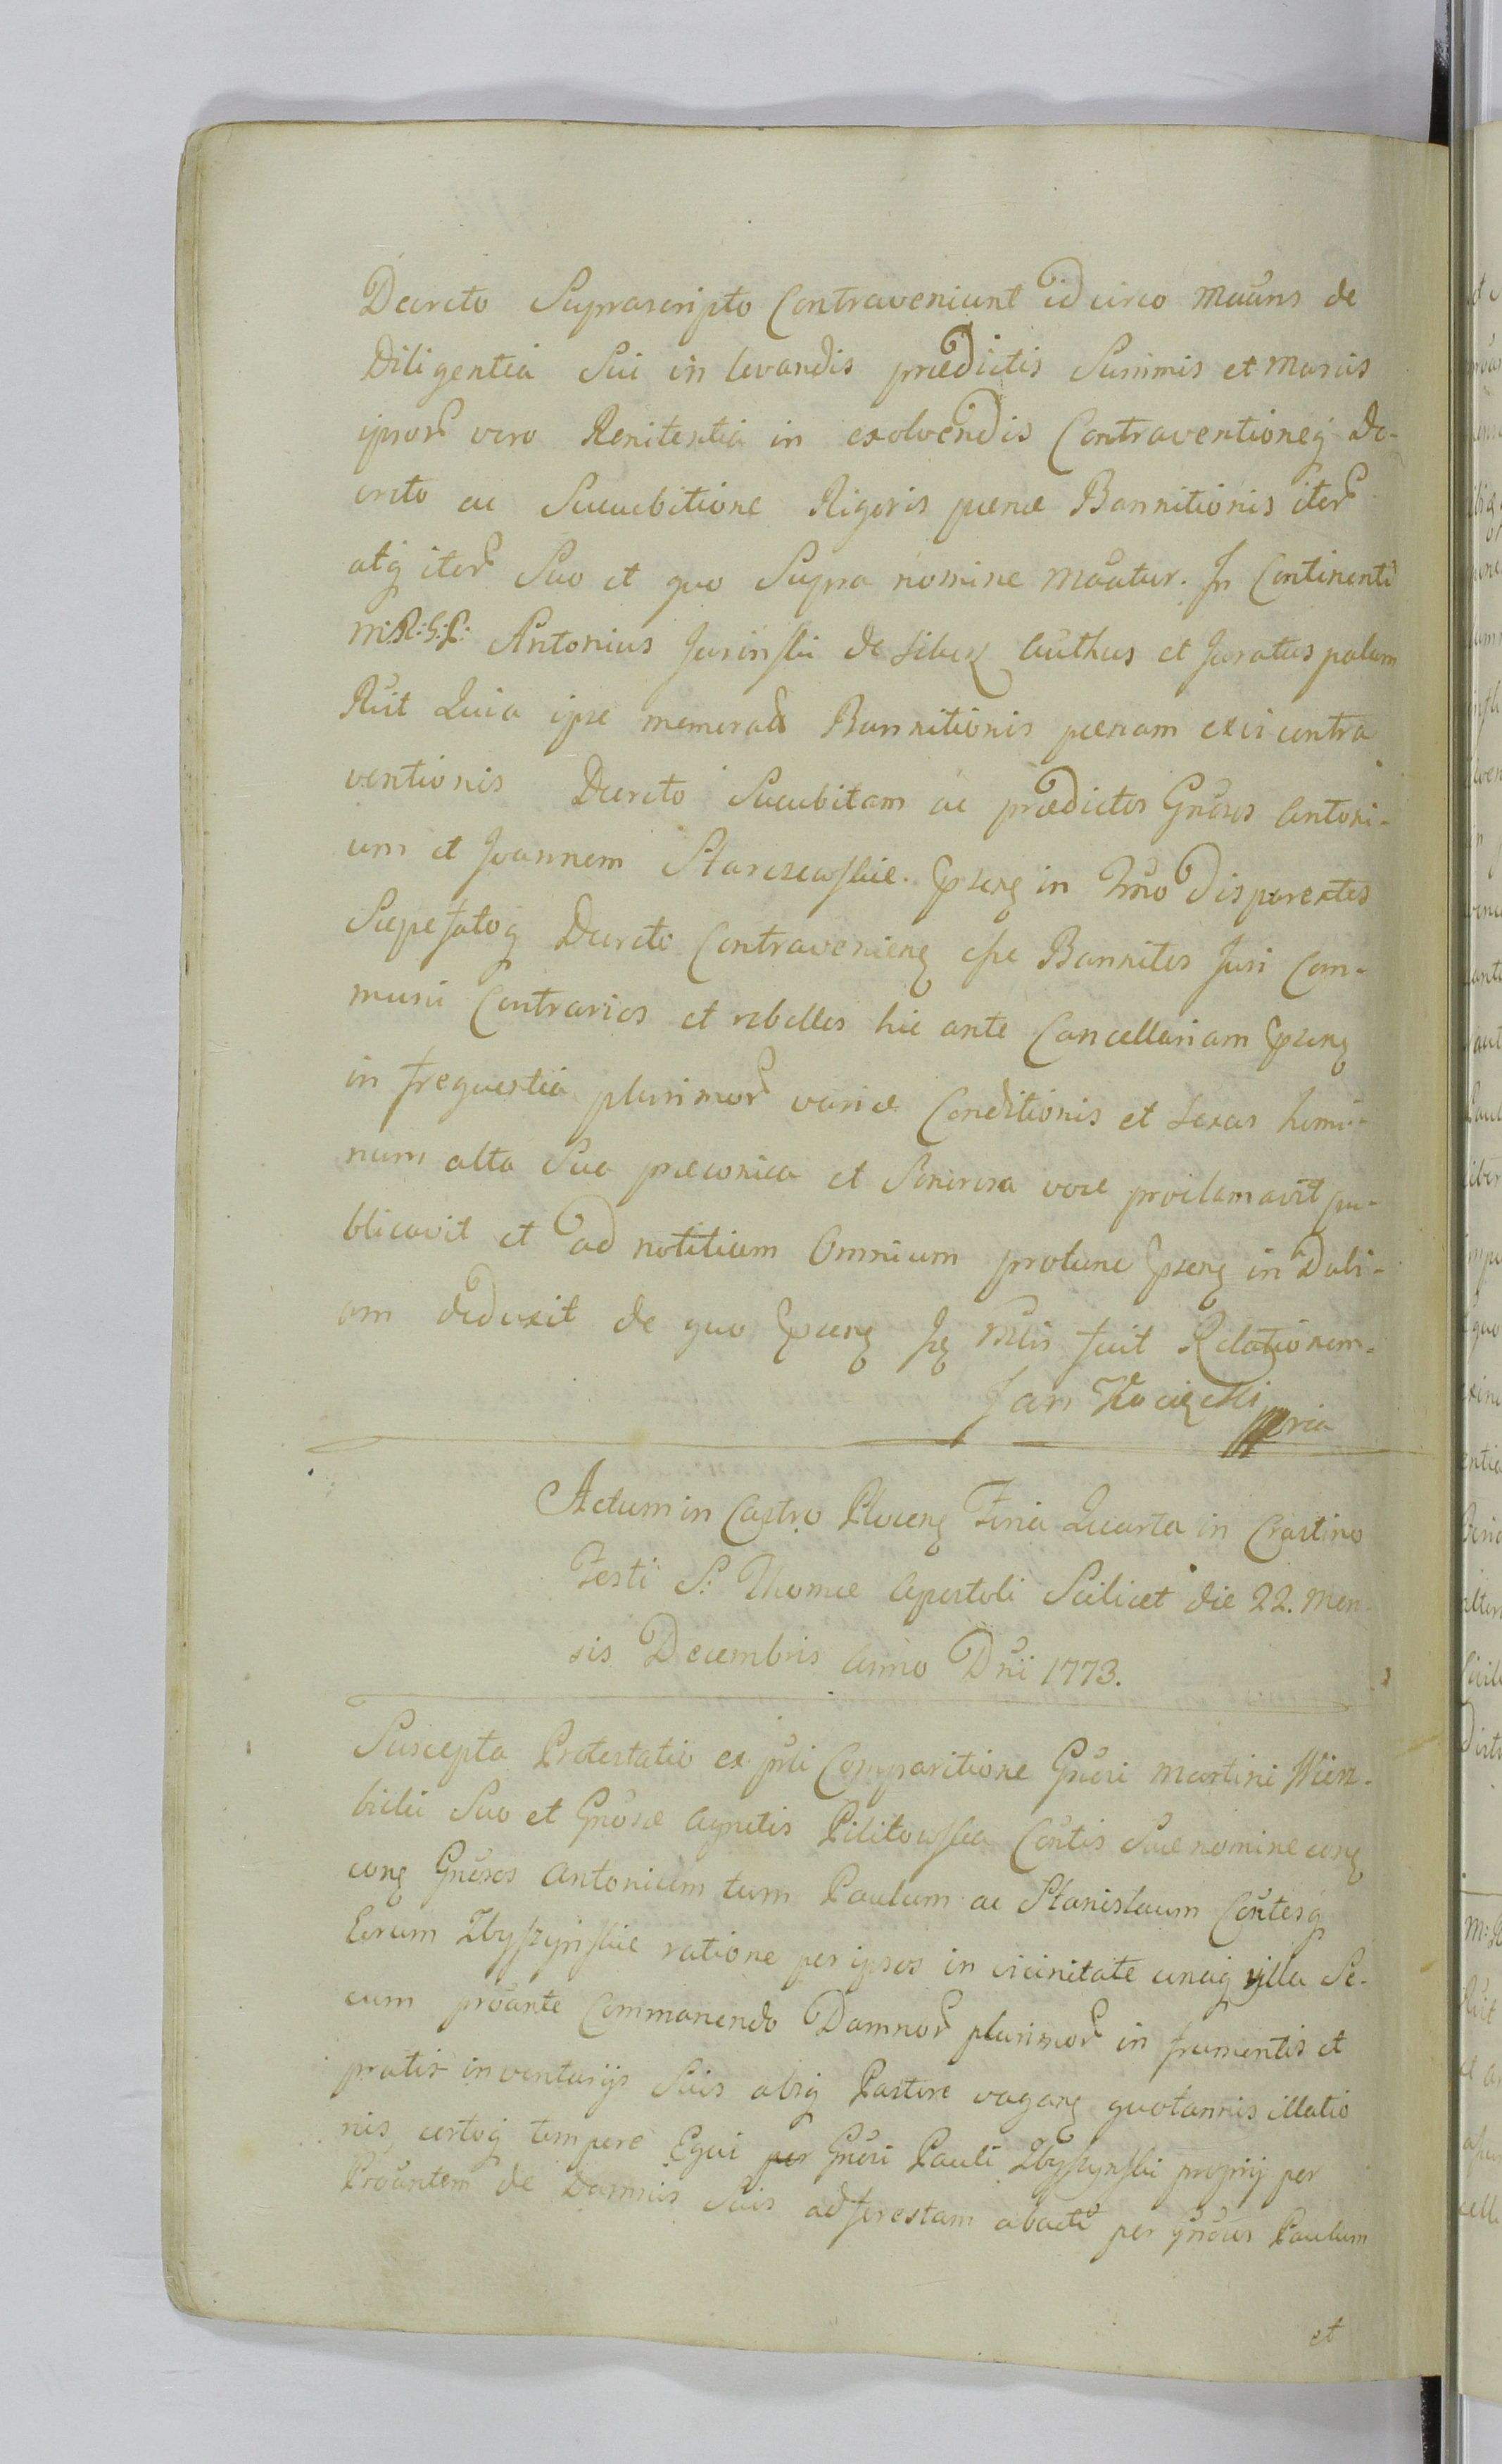 Decreto Suprascripto Contraveniunt idcirco mãuns de
Diligentia Sui in levandis prædictis Summis et manus
ipsor̃ vero Renitentia in exolvendis Contraventioneq̃ De-
creto ac Sucubitione Rigoris pœnæ Bannitionis iter̃
atq̃ iter̃ Suo et quo Supra nomine mãatur. In Continenti
M:R:G:P: Antonius Jasinski de Liber Authus et Juratus palam
Rũit Quia ipse memorata Bannitionis pœnam ex contra
ventionis Decreto Sucubitam ac prædictos Gñosos Antoni-
um et Joannem Starczewskie Ppseng in Tmõ disparentes
Sæpefatoq̃ Decreto Contravenieng esse Bannitos Juri Com-
muni Contrarios et rebelles hic ante Cancellariam Ppseng
in frequentia plurimor̃ variæ Conditionis et Sexus homi-
num alta Sua præconica et Sonorosa voce proclamavit pu-
blicavit et ad notitiam Omnium protunc Ppseng in Dubi-
am deduxit de quo Ppseng Hq̃ ñtlis fuit Relationem.
Jan Kocięcki mpria
Actum in Castro Ploceng Feria Quarta in Crastino
Festi S: Thomæ Apostoli Scilicet die 22. Men-
sis Decembris Anno Dñi 1773.
Suscepta Protestatio ex pñti Comparitione Gñosi Martini Wierz-
bicki Suo et Gñosæ Agnetis Pilitowska Cõntis Suæ nomine cong
cong Gñosos Antonium tum Paulum ac Stanislaum Cõntesq̃
Eorum Zbyszynskie ratione per ipsos in vicinitate unaq̃ villa Se-
cum prõante Commanendo Damnor̃ plurimor̃ in frumentis et
pratis inventarijs Suis absq̃ Pastore vagang quotannis illatio
nis, certoq̃ tempore Equi per Gñosi Pauli Zbyszynski proprij per
Prõantem de Damnis Suis ad forestam abacti per Gñosus Paulum
et